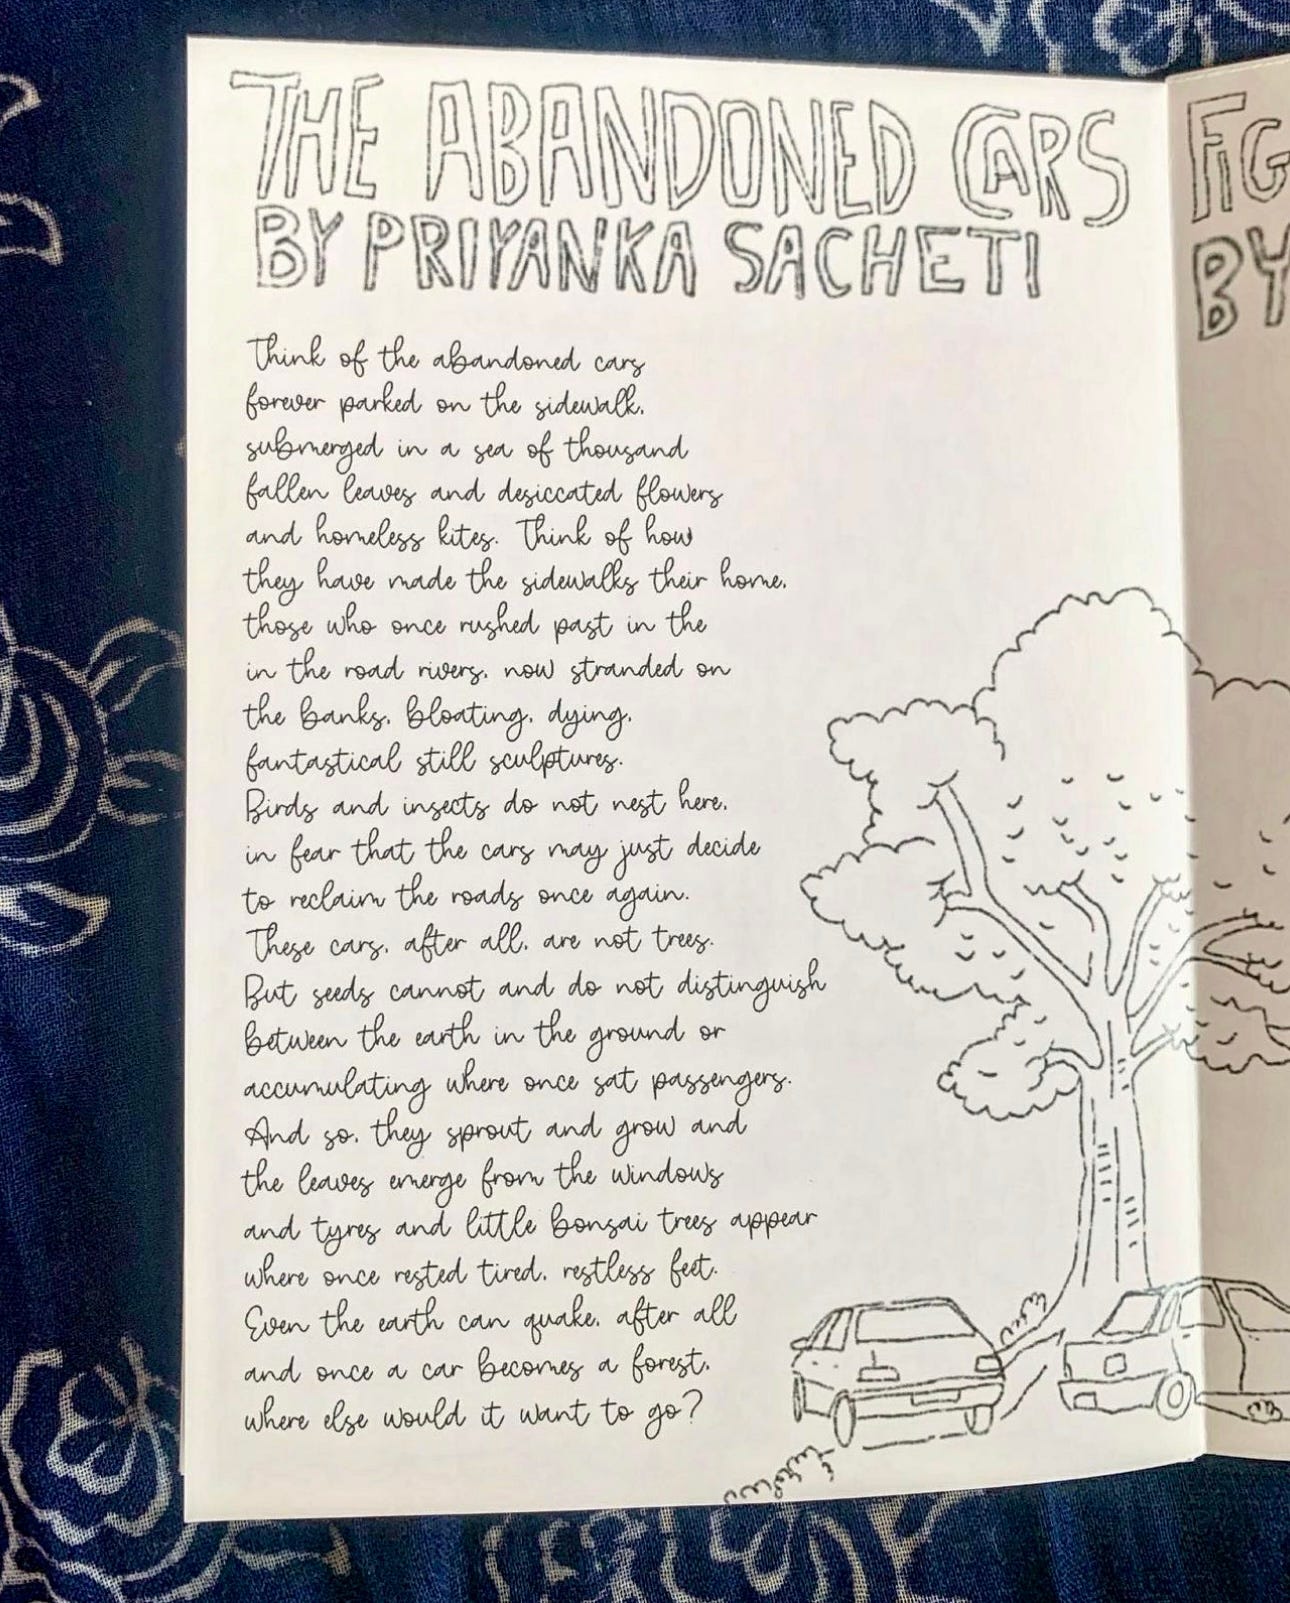 THE ABANDONED CARS
BY PRIYANKA SACHETI
Think of the abandoned cars
forever parked on the sidewalk,
submerged in a sea of thousand
fallen leaves and desiccated flowers
and homeless kites. Think of how
they have made the sidewalks their home,
those who once rushed past in the
in the road rivers, now stranded on
the banks, bloating, dying,
fantastical still sculptures.
Birds and insects do not nest here,
in fear that the cars may just decide
to reclaim the roads once again.
These cars, after all, are not trees.
But seeds cannot and do not distinguish
between the earth in the ground or
accumulating where once sat passengers.
And so, they sprout and grow and
the leaves emerge from the windows
and tyres and little bonsai trees appear
where once rested tired, restless feet.
Even the earth can quake, after all
and once a car becomes a forest,
where else would it want to go?
FIG
BY